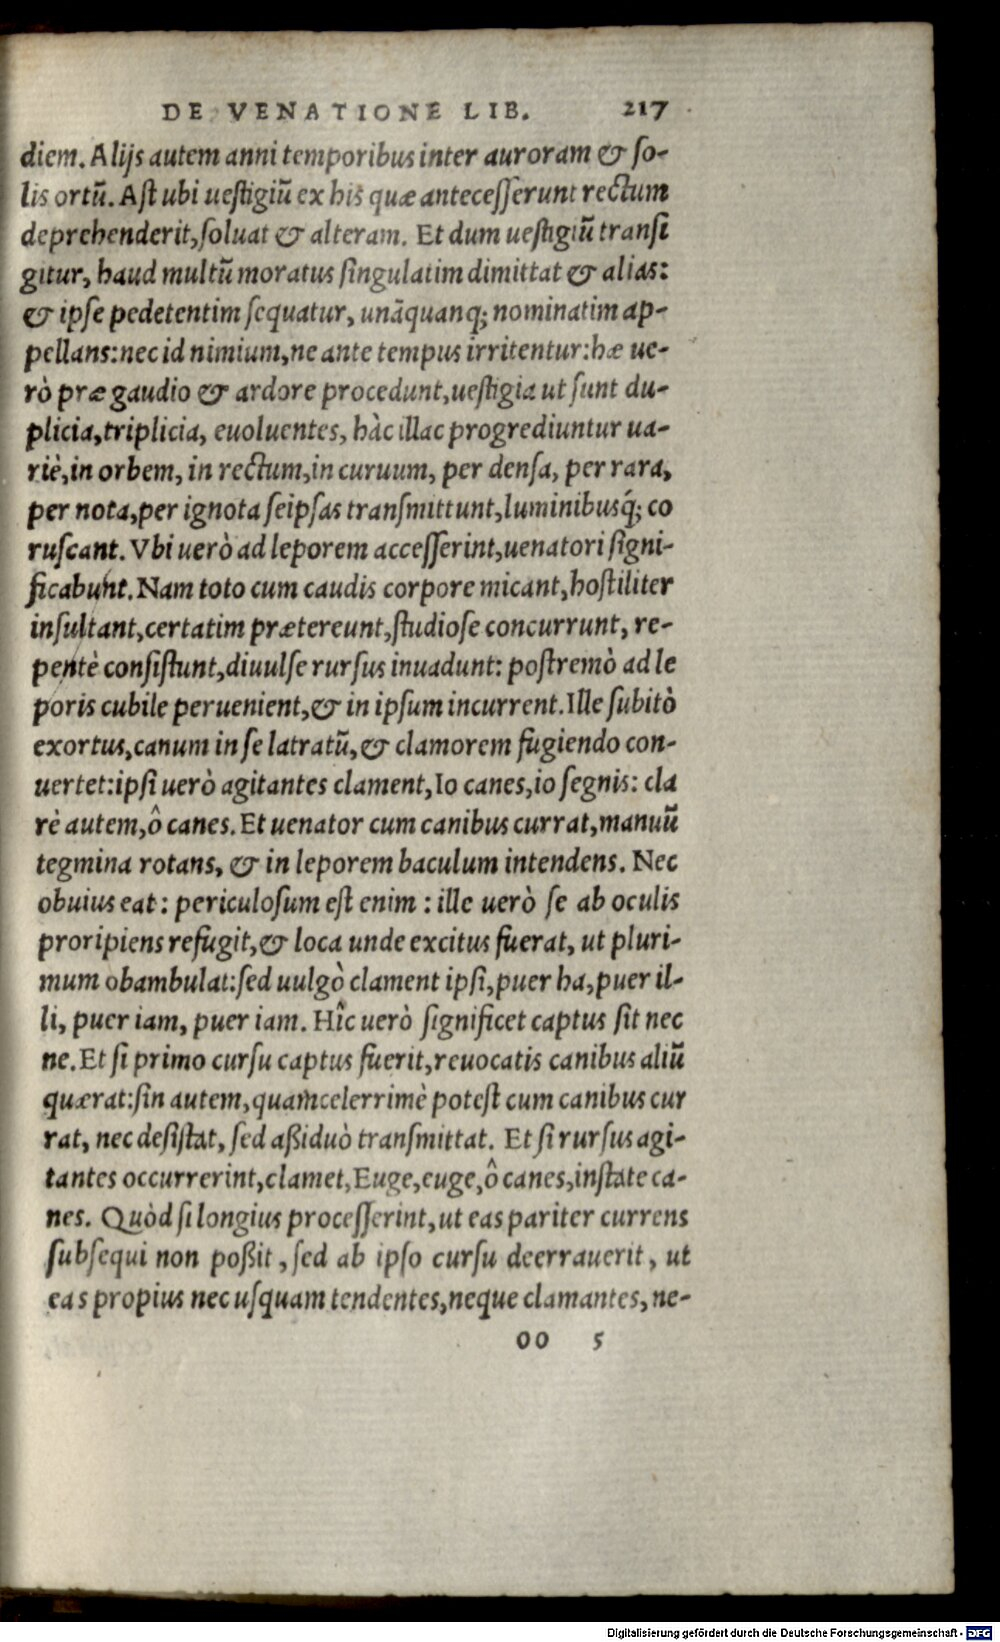 DE VENATIONE LIB. 217
diem. Alijs autem anni temporibus inter auroram & so-
lis ortũ. Ast ubi uestigiũ ex his quæ antecesserunt rectum
deprehenderit, soluat & alteram. Et dum uestigiũ transi
gitur, haud multũ moratus singulatim dimittat & alias:
& ipse pedetentim sequatur, unãquanq; nominatim ap-
pellans: nec id nimium, ne ante tempus irritentur: hæ ue-
rò præ gaudio & ardore procedunt, uestigia ut sunt du-
plicia, triplicia, euoluentes, hàc illac progrediuntur ua-
riè, in orbem, in rectum, in curuum, per densa, per rara,
per nota, per ignota seipsas transmittunt, luminibusq́; co
ruscant. Vbi uerò ad leporem accesserint, uenatori signi-
ficabunt. Nam toto cum caudis corpore micant, hostiliter
insultant, certatim prætereunt, studiose concurrunt, re-
pentè consistunt, diuulse rursus inuadunt: postremò ad le
poris cubile peruenient, & in ipsum incurrent. Ille subitò
exortus, canum in se latratũ, & clamorem fugiendo con-
uertet: ipsi uerò agitantes clament, Io canes, io segnis: cla
rè autem, ô canes. Et uenator cum canibus currat, manuũ
tegmina rotans, & in leporem baculum intendens. Nec
obuius eat: periculosum est enim: ille uerò se ab oculis
proripiens refugit, & loca unde excitus fuerat, ut pluri-
mum obambulat: sed uulgò clament ipsi, puer ha, puer il-
li, puer iam, puer iam. Hîc uerò significet captus sit nec
ne. Et si primo cursu captus fuerit, reuocatis canibus aliũ
quærat: sin autem, quamcelerrimè potest cum canibus cur
rat, nec desistat, sed aßiduò transmittat. Et si rursus agi-
tantes occurrerint, clamet, Euge, euge, ô canes, instate ca-
nes. Quòd si longius processerint, ut eas pariter currens
subsequi non poßit, sed ab ipso cursu deerrauerit, ut
eas propius nec usquam tendentes, neque clamantes, ne-
oo 5
Digitalisierung gefördert durch die Deutsche Forschungsgemeinschaft - DFG